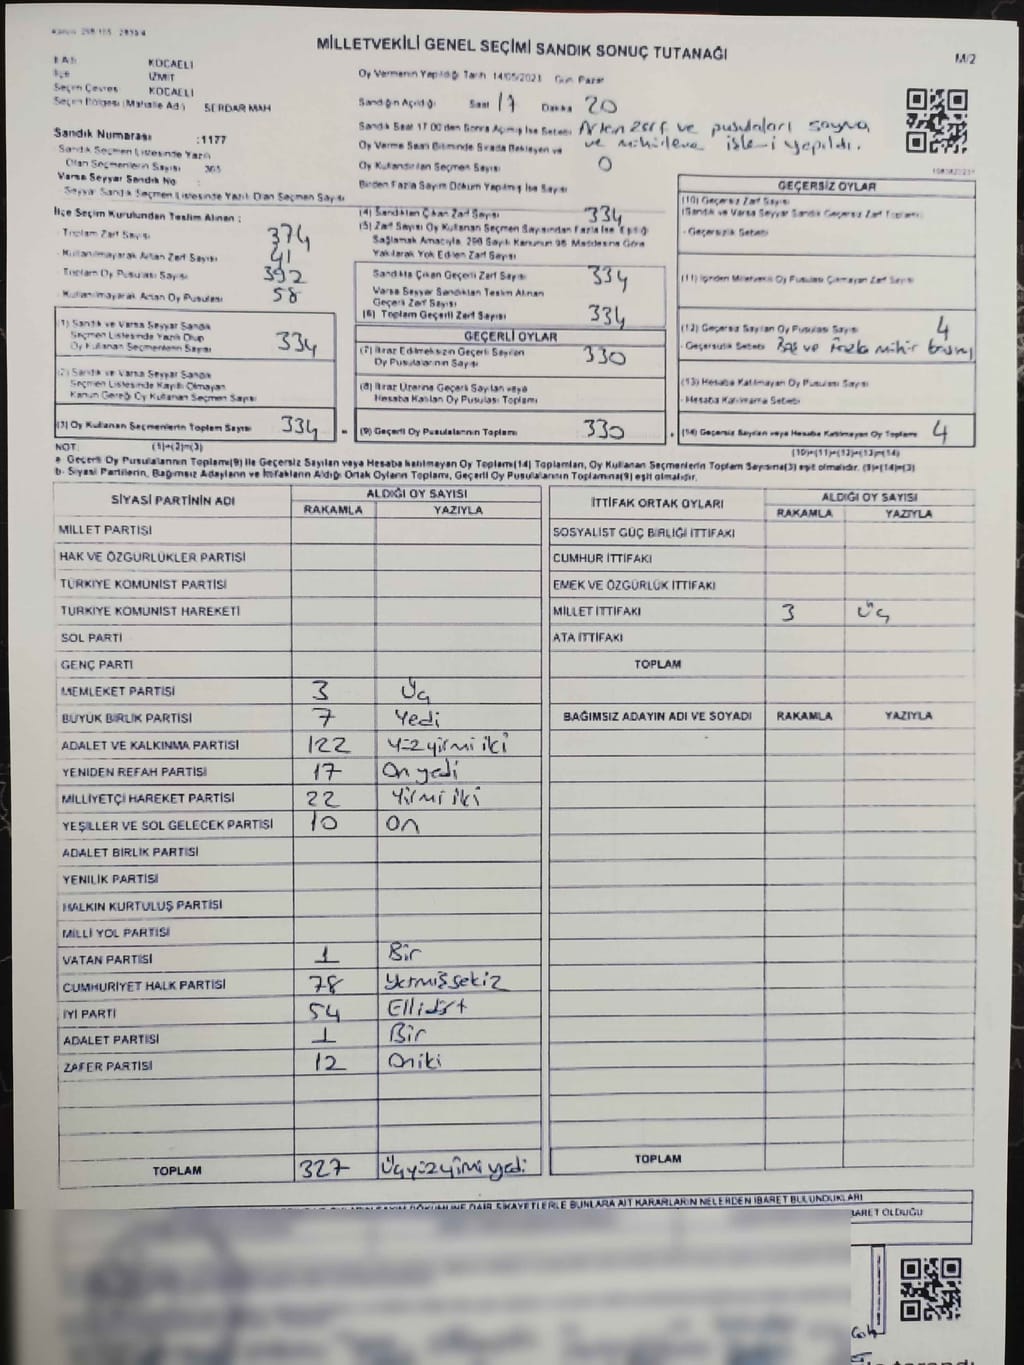 MİLLETVEKİLİ GENEL SEÇİMİ SANDIK SONUÇ TUTANAĞI
M/2
KOCAELİ
İlçe İZMİT
Seçim Çevresi KOCAELİ
Seçim Bölgesi (Mahalle Adı) SERDAR MAH
Sandık Numarası :1177
Sandık Seçmen Listesinde Yazılı
Olan Seçmenlerin Sayısı 365
Varsa Seyyar Sandık No :
Seyyar Sandık Seçmen Listesinde Yazılı Olan Seçmen Sayısı
Oy Vermenin Yapıldığı Tarih 14/05/2023 Gün Pazar
Sandığın Açıldığı Saat 17 Dakika 20
Sandık Saat 17.00'den Sonra Açılmış İse Sebebi Artan zarf ve pusulaları sayma
ve mühürleme işlemi yapıldı.
Oy Verme Saati Bitiminde Sırada Bekleyen ve
Oy Kullandırılan Seçmen Sayısı 0
Birden Fazla Sayım Döküm Yapılmış İse Sayısı
İlçe Seçim Kurulundan Teslim Alınan :
- Toplam Zarf Sayısı 374
- Kullanılmayarak Artan Zarf Sayısı 41
- Toplam Oy Pusulası Sayısı 392
- Kullanılmayarak Artan Oy Pusulası 58
(1) Sandık ve Varsa Seyyar Sandık
Seçmen Listesinde Yazılı Olup
Oy Kullanan Seçmenlerin Sayısı 334
(2) Sandık ve Varsa Seyyar Sandık
Seçmen Listesinde Kayıtlı Olmayan
Kanun Gereği Oy Kullanan Seçmen Sayısı
(3) Oy Kullanan Seçmenlerin Toplam Sayısı 334
(4) Sandıktan Çıkan Zarf Sayısı 334
(5) Zarf Sayısı Oy Kullanan Seçmen Sayısından Fazla İse Eşitliği
Sağlamak Amacıyla, 298 Sayılı Kanunun 98. Maddesine Göre
Yakılarak Yok Edilen Zarf Sayısı
Sandıkta Çıkan Geçerli Zarf Sayısı 334
Varsa Seyyar Sandıktan Teslim Alınan
Geçerli Zarf Sayısı
(6) Toplam Geçerli Zarf Sayısı 334
GEÇERLİ OYLAR
(7) İtiraz Edilmeksizin Geçerli Sayılan
Oy Pusulalarının Sayısı 330
(8) İtiraz Üzerine Geçerli Sayılan veya
Hesaba Katılan Oy Pusulası Toplamı
(9) Geçerli Oy Pusulalarının Toplamı 330
GEÇERSİZ OYLAR
(10) Geçersiz Zarf Sayısı
(Sandık ve Varsa Seyyar Sandık Geçersiz Zarf Toplamı)
- Geçersizlik Sebebi
(11) İçinden Milletvekili Oy Pusulası Çıkmayan Zarf Sayısı
(12) Geçersiz Sayılan Oy Pusulası Sayısı 4
- Geçersizlik Sebebi Boş ve fazla mühür basımı
(13) Hesaba Katılmayan Oy Pusulası Sayısı
- Hesaba Katılmama Sebebi
(14) Geçersiz Sayılan veya Hesaba Katılmayan Oy Toplamı 4
NOT: (1)+(2)=(3) (10)+(11)+(12)+(13)=(14)
a- Geçerli Oy Pusulalarının Toplamı(9) ile Geçersiz Sayılan veya Hesaba katılmayan Oy Toplamı(14) Toplamları, Oy Kullanan Seçmenlerin Toplam Sayısına(3) eşit olmalıdır. (9)+(14)=(3)
b- Siyasi Partilerin, Bağımsız Adayların ve İttifakların Aldığı Ortak Oyların Toplamı, Geçerli Oy Pusulalarının Toplamına(9) eşit olmalıdır.
SİYASİ PARTİNİN ADI ALDIĞI OY SAYISI
RAKAMLA YAZIYLA
MİLLET PARTİSİ
HAK VE ÖZGÜRLÜKLER PARTİSİ
TÜRKİYE KOMÜNİST PARTİSİ
TÜRKİYE KOMÜNİST HAREKETİ
SOL PARTİ
GENÇ PARTİ
MEMLEKET PARTİSİ 3 Üç
BÜYÜK BİRLİK PARTİSİ 7 Yedi
ADALET VE KALKINMA PARTİSİ 122 Yüzyirmi iki
YENİDEN REFAH PARTİSİ 17 On yedi
MİLLİYETÇİ HAREKET PARTİSİ 22 Yirmi iki
YEŞİLLER VE SOL GELECEK PARTİSİ 10 On
ADALET BİRLİK PARTİSİ
YENİLİK PARTİSİ
HALKIN KURTULUŞ PARTİSİ
MİLLİ YOL PARTİSİ
VATAN PARTİSİ 1 Bir
CUMHURİYET HALK PARTİSİ 78 Yetmişsekiz
İYİ PARTİ 54 Ellidört
ADALET PARTİSİ 1 Bir
ZAFER PARTİSİ 12 Oniki
TOPLAM 327 Üçyüzyirmi yedi
İTTİFAK ORTAK OYLARI ALDIĞI OY SAYISI
RAKAMLA YAZIYLA
SOSYALİST GÜÇ BİRLİĞİ İTTİFAKI
CUMHUR İTTİFAKI
EMEK VE ÖZGÜRLÜK İTTİFAKI
MİLLET İTTİFAKI 3 Üç
ATA İTTİFAKI
TOPLAM
BAĞIMSIZ ADAYIN ADI VE SOYADI RAKAMLA YAZIYLA
TOPLAM
SAYIM DÖKÜMÜNE DAİR ŞİKAYETLERLE BUNLARA AİT KARARLARIN NELERDEN İBARET BULUNDUKLARI
İBARET OLDUĞU